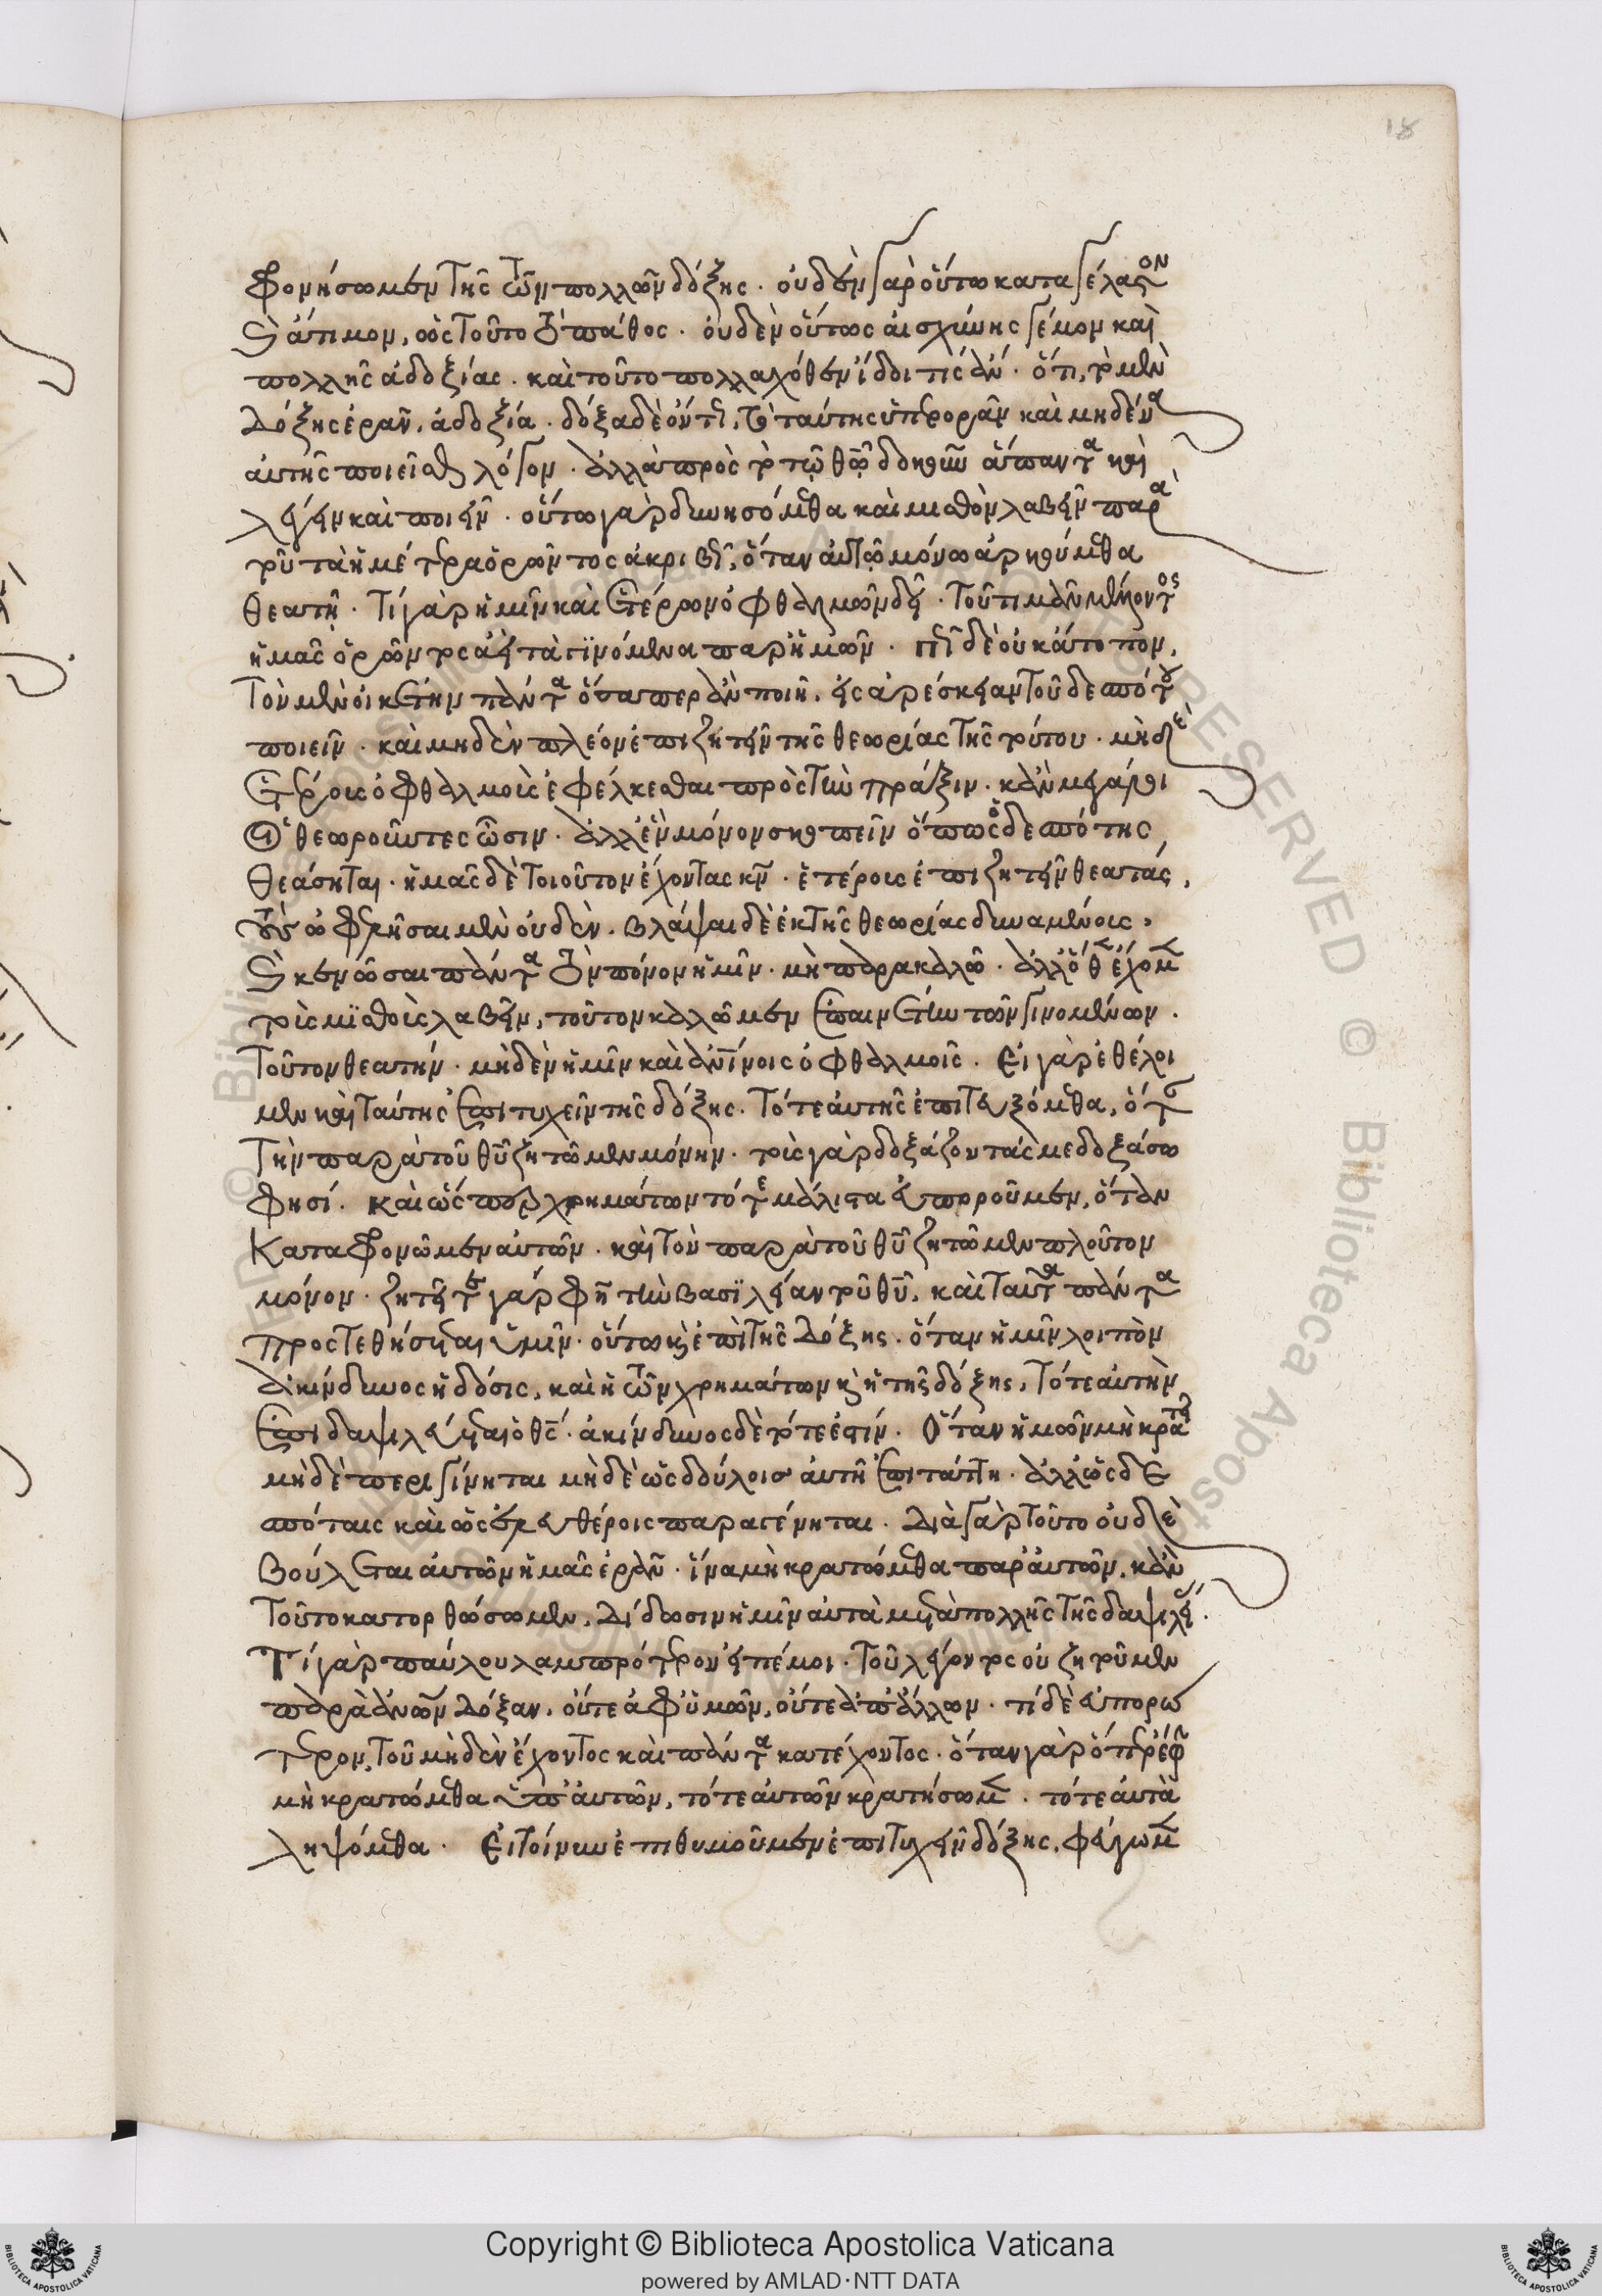 18
φρονήσωμεν τῆς τῶν πολλῶν δόξης. οὐδὲν γὰρ οὕτω καταγέλαστον
καὶ ἄτιμον, ὡς τοῦτο τὸ πάθος. οὐδὲν οὕτως αἰσχύνης γέμον καὶ
πολλῆς ἀδοξίας. καὶ τοῦτο πολλαχόθεν ἴδοι τίς ἄν. ὅτι, τὸ μὲν
δόξης ἐρᾶν, ἀδοξία. δόξα δὲ ὄντως, τὸ ταύτης ὑπερορᾶν καὶ μηδένα
αὐτῆς ποιεῖσθαι λόγον. ἀλλὰ πρὸς τὸ τῷ θεῷ δοκοῦν ἅπαντα καὶ
λέγειν καὶ ποιεῖν. οὕτω γὰρ δυνησόμεθα καὶ μισθὸν λαβεῖν παρὰ
τοῦ τὰ ἡμέτερα ὁρῶντος ἀκριβῶς, ὅταν αὐτῷ μόνῳ ἀρκούμεθα
θεατῇ. τί γὰρ ἡμῖν καὶ ἑτέρων ὀφθαλμῶν δεῖ. τοῦ τιμᾶν μέλλοντος
ἡμᾶς ὁρῶντος ἀεὶ τὰ γϊνόμενα παρ' ἡμῶν. πῶς δὲ οὐκ ἄτοπον,
τὸν μὲν οἰκέτην πάντα ὅσαπερ ἂν ποιῇ, εἰς ἀρέσκειαν τοῦ δεσπότου
ποιεῖν. καὶ μηδὲν πλέον ἐπιζητεῖν τῆς θεωρίας τῆς τούτου. μὴδὲ
ἑτέροις ὀφθαλμοὶς ἐφέλκεσθαι πρὸς τὴν πρᾶξιν. κἂν μεγάλοι
οἱ θεωροῦντες ὦσιν. ἀλλ' ἓν μόνον σκοπεῖν ὅπως ὁ δεσπότης
θεάσηται. ἡμᾶς δὲ τοιοῦτον ἔχοντας κύριον. ἑτέροις ἐπιζητεῖν θεατάς,
τοὺς ὠφελῆσαι μὲν οὐδὲν. βλάψαι δὲ ἐκ τῆς θεωρίας δυναμένοις,
καὶ κενῶσαι πάντα τὸν πόνον ἡμῖν. μὴ παρακαλῶ. ἀλλ' ὅθεν ἔχομεν
τοὶς μϊσθοὶς λαβεῖν, τοῦτον καλῶμεν ἐπαινέτην τῶν γινομένων.
τοῦτον θεατήν. μὴδὲν ἡμῖν καὶ ἀνθρωπίνοις ὀφθαλμοῖς. εἰ γὰρ ἐθέλοι
μεν καὶ ταύτης ἐπιτυχεῖν τῆς δόξης. τότε αὐτῆς ἐπιτευξόμεθα, ὅταν
τὴν παρὰ τοῦ θεοῦ ζητῶμεν μόνην. τοὶς γὰρ δοξάζοντάς με δοξάσω
φησί. καὶ ὥς περ χρημάτων τότε μάλιστα εὐποροῦμεν, ὅταν
καταφρονῶμεν αὐτῶν. καὶ τὸν παρὰ τοῦ θεοῦ ζητῶμεν πλοῦτον
μόνον. ζητεῖτε γάρ φησι τὴν βασϊλείαν τοῦ θεοῦ, καὶ ταῦτα πάντα
προστεθήσεται ὑμῖν. οὕτω καὶ ἐπὶ τῆς δόξης. ὅταν ἡμῖν λοιπὸν
ἀκίνδυνος ἡ δόσις, καὶ ἡ τῶν χρημάτων καὶ ἡ τῆς δόξης, τότε αὐτὴν
ἐπιδαψιλεύεται ὁ θεός. ἀκίνδυνος δὲ τότε ἐστίν. ὅταν ἡμῶν μὴ κρατῇ
μὴδὲ περιγίνηται μὴδὲ ὡς δούλοις αὐτῇ ἐπιτάττη. ἀλλ' ὡς δε
σπόταις καὶ ὡς ἐλευθέροις παραγένηται. διὰ γὰρ τοῦτο οὐδὲ
βούλεται αὐτῶν ἡμᾶς ἐρᾶν. ἵνα μὴ κρατώμεθα παρ' αὐτῶν. κἂν
τοῦτο κατορθώσωμεν, δίδωσιν ἡμῖν αὐτὰ μετὰ πολλῆς τῆς δαψιλείας.
τί γὰρ παύλου λαμπρότερον εἰπέ μοι. τοῦ λέγοντος οὐ ζητοῦμεν
παρὰ ἀνθρώπων δόξαν, οὔτε ἀφ' ὑμῶν, οὔτε ἀπ' ἄλλων. τί δὲ εὐπορώ
τερον, τοῦ μὴδὲν ἔχοντος καὶ πάντα κατέχοντος. ὅταν γὰρ ὅπερ ἔφην
μὴ κρατώμεθα ὑπ' αὐτῶν, τότε αὐτῶν κρατήσωμεν. τότε αὐτὰ
ληψόμεθα. εἰ τοίνυν ἐπιθυμοῦμεν ἐπιτυχεῖν δόξης, φεύγωμεν
Copyright © Biblioteca Apostolica Vaticana
powered by AMLAD·NTT DATA